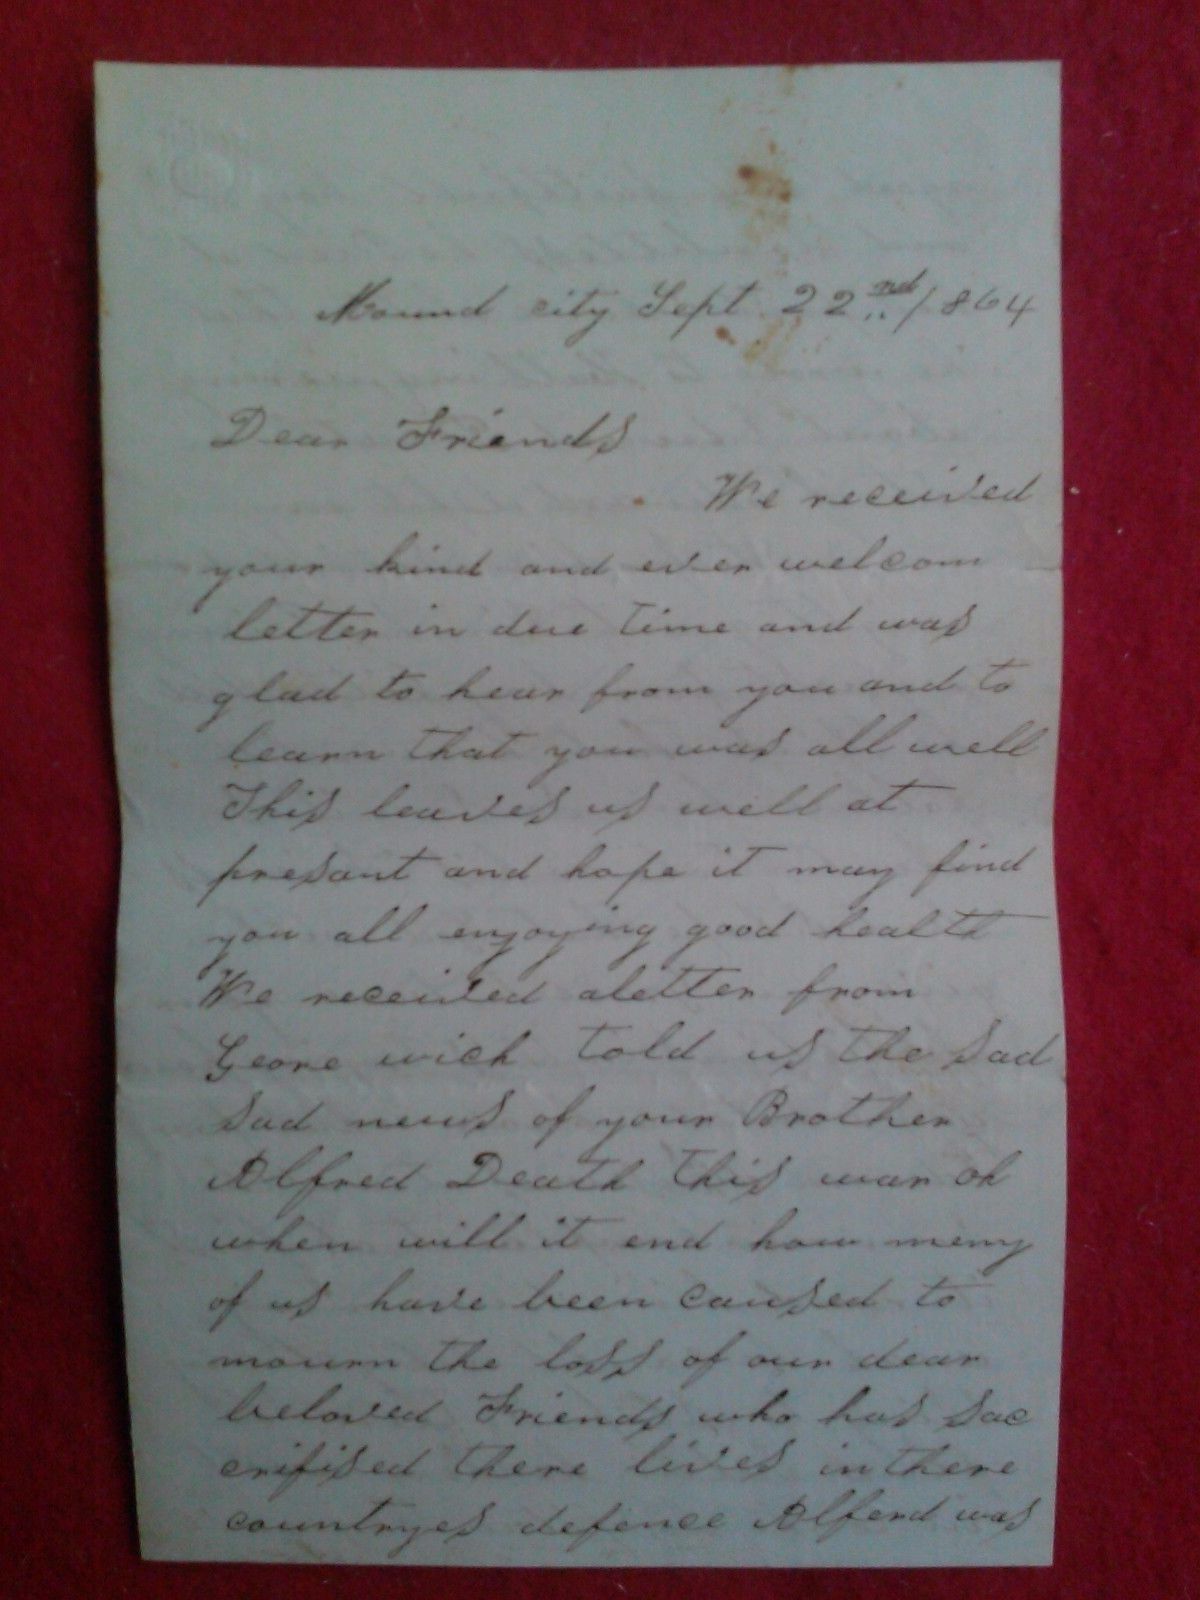 Mound city Sept 22nd / 1864
Dear Friends
We received
your kind and ever welcom
letter in due time and was
glad to hear from you and to
learn that you was all well
This leaves us well at
presant and hope it may find
you all enjoying good health
We received aletter from
Geore wich told us the sad
sad news of your Brother
Alfred Death this war oh
when will it end how meny
of us have been caused to
mourn the loss of our dear
beloved Friends who has sac
crifised there lives in there
countryes defence Alferd was